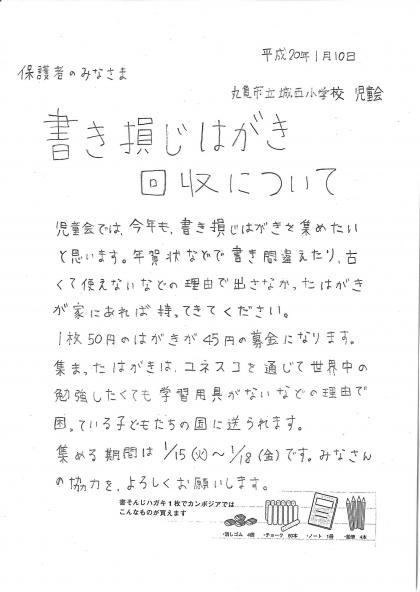 平成20年1月10日
保護者のみなさま
丸亀市立城西小学校 児童会
書き損じはがき
回収について
児童会では、今年も、書き損じはがきを集めたい
と思います。年賀状などで書き間違えたり、古
くて使えないなどの理由で出さなかったはがき
が家にあれば持ってきてください。
1枚50円のはがきが45円の募金になります。
集まったはがきは、ユネスコを通じて世界中の
勉強したくても学習用具がないなどの理由で
困っている子どもたちの国に送られます。
集める期間は1/15(火)〜1/18(金)です。みなさん
の協力を、よろしくお願いします。
書そんじハガキ1枚でカンボジアでは
こんなものが買えます
・消しゴム 4個 ・チョーク 60本 ・ノート 1冊 ・鉛筆 4本